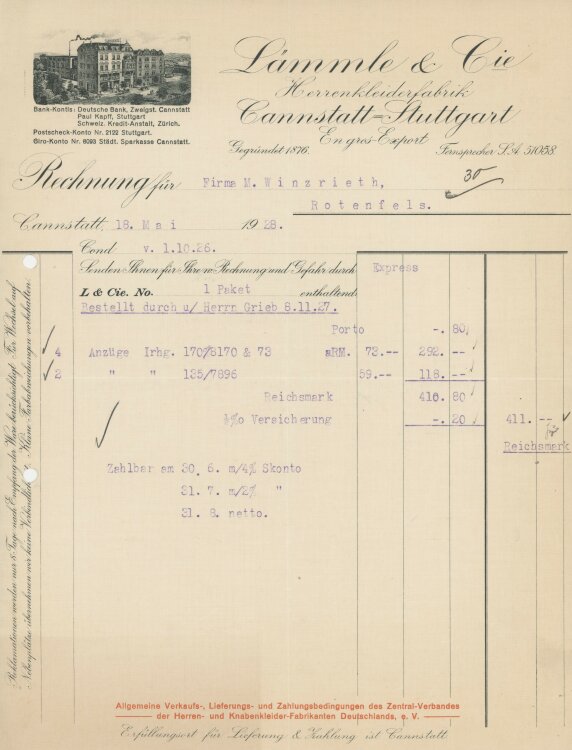 Lämmle & Cie
Herrenkleiderfabrik
Cannstatt=Stuttgart
En gros-Export
Gegründet 1876.
Fernsprecher S.A. 51058.
Bank-Kontis: Deutsche Bank, Zweigst. Cannstatt
Paul Kapff, Stuttgart
Schweiz. Kredit-Anstalt, Zürich.
Postscheck-Konto Nr. 2122 Stuttgart.
Giro-Konto Nr. 6093 Städt. Sparkasse Cannstatt.
Rechnung für Firma M. Winzrieth,
30
Rotenfels.
Cannstatt, 18. Mai 1928.
Cond v. 1.10.26.
Senden Ihnen für Ihre Rechnung und Gefahr durch Express
L & Cie. No. 1 Paket enthaltend:
Bestellt durch u/ Herrn Grieb 8.11.27.
Porto -. 80
4 Anzüge Irhg. 170/8170 & 73 aRM. 73.-- 292. --
2 " " 135/7896 59.-- 118. --
Reichsmark 410. 80
½%o Versicherung -. 20 411. --
Reichsmark
Zahlbar am 30. 6. m/4% Skonto
31. 7. m/2% "
31. 8. netto.
Reklamationen werden nur 8 Tage nach Empfang der Ware berücksichtigt. Für Wechsel auf
Nebenplätze übernehmen wir keine Verbindlichkeit. Kleine Farbabweichungen vorbehalten.
Allgemeine Verkaufs-, Lieferungs- und Zahlungsbedingungen des Zentral-Verbandes
der Herren- und Knabenkleider-Fabrikanten Deutschlands, e. V.
Erfüllungsort für Lieferung & Zahlung ist Cannstatt.